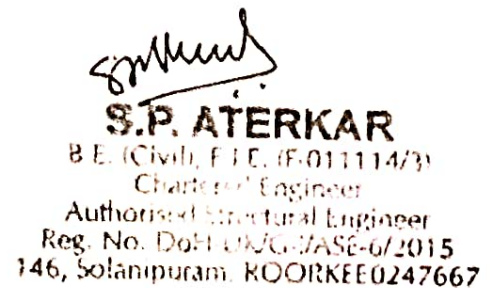 S.P. ATERKAR
B.E. (Civil), F.I.E. (F-011114/3)
Chartered Engineer
Authorised Structural Engineer
Reg. No. /ASE-6/2015
146, Solanipuram, ROORKEE 0247667